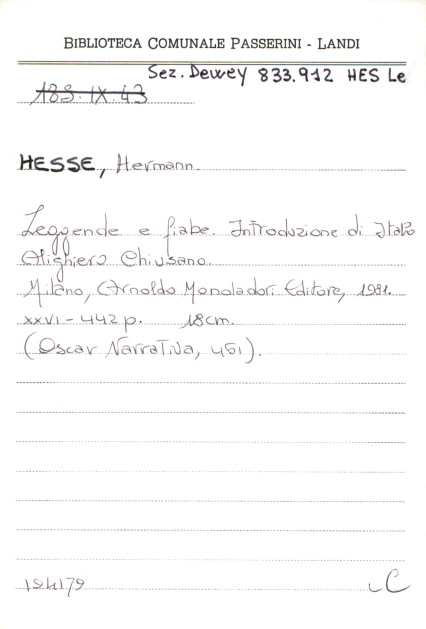 BIBLIOTECA COMUNALE PASSERINI - LANDI
Sez. Dewey 833.912 HES Le
183.IX.43
HESSE, Hermann.
Leggende e fiabe. Introduzione di Italo
Alighiero Chiusano.
Milano, Arnoldo Mondadori Editore, 1981.
XXVI - 442 p. 18 cm.
(Oscar Narrativa, 451).
124179